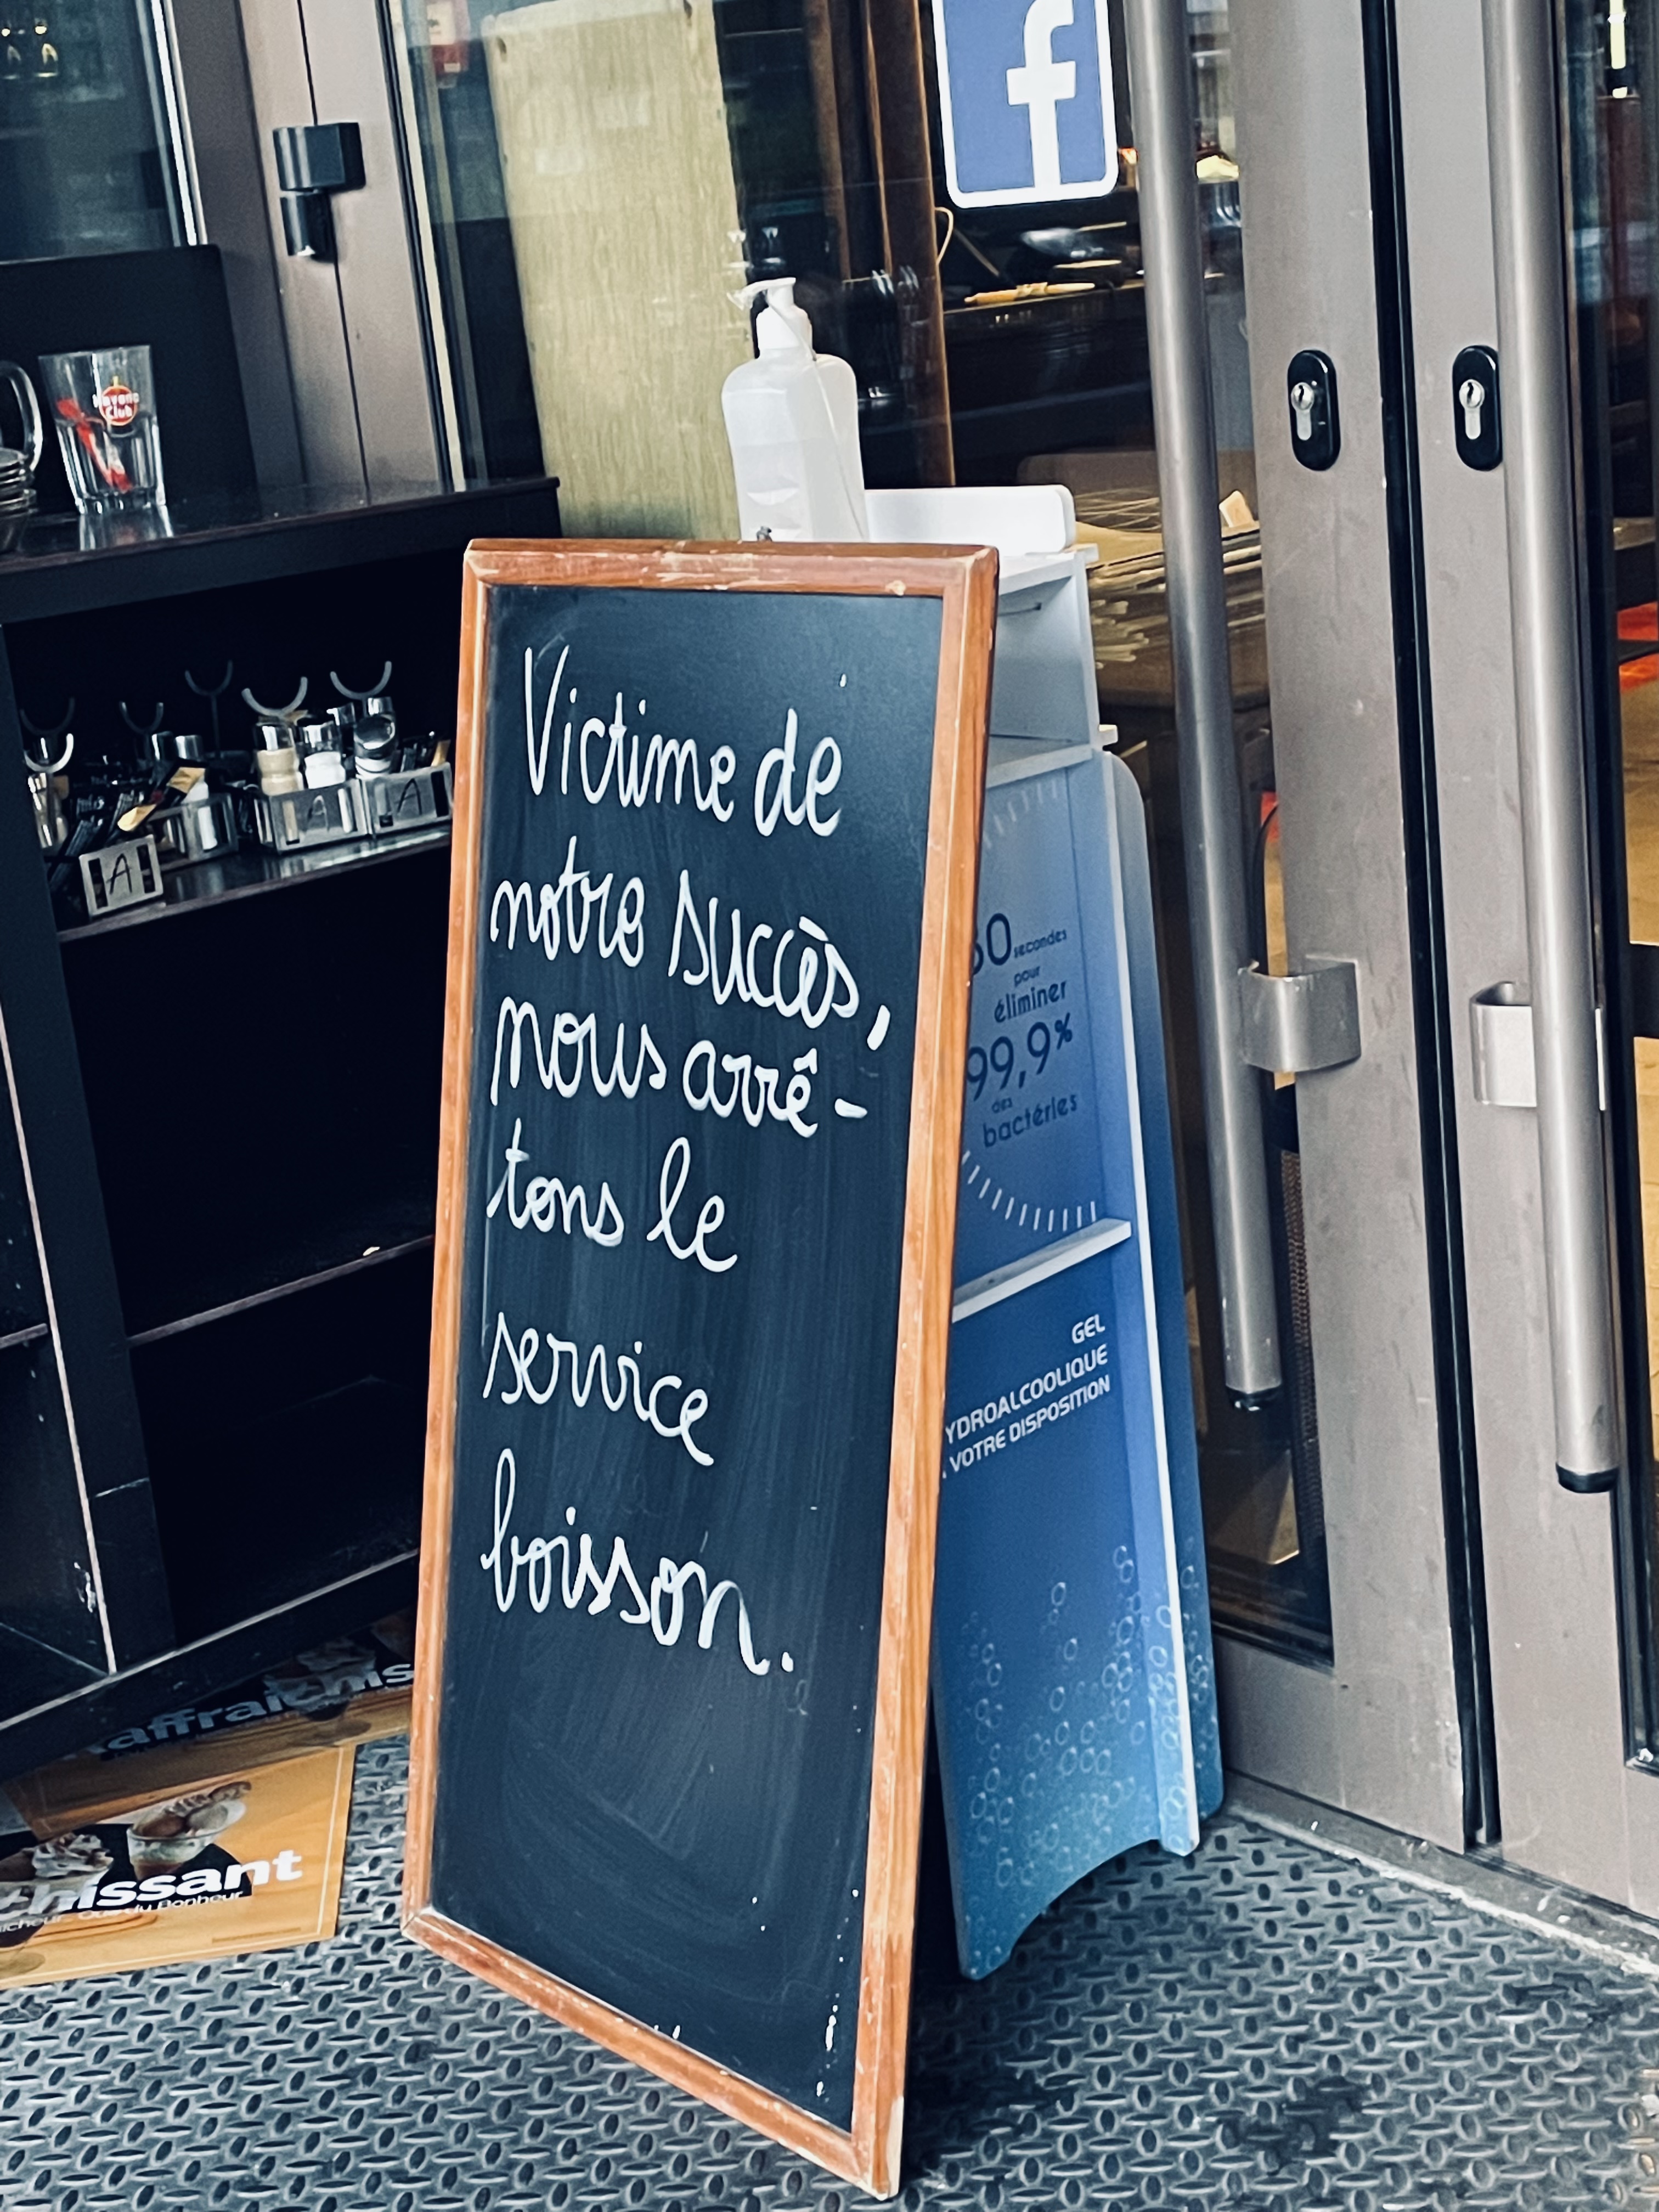 f
Havana
Club
Victime de
notre succès,
nous arrê-
tons le
service
boisson.
A
A
A
secondes
pour
éliminer
99,9%
des
bactéries
GEL
YDROALCOOLIQUE
VOTRE DISPOSITION
affraichis
chissant
du Bonheur